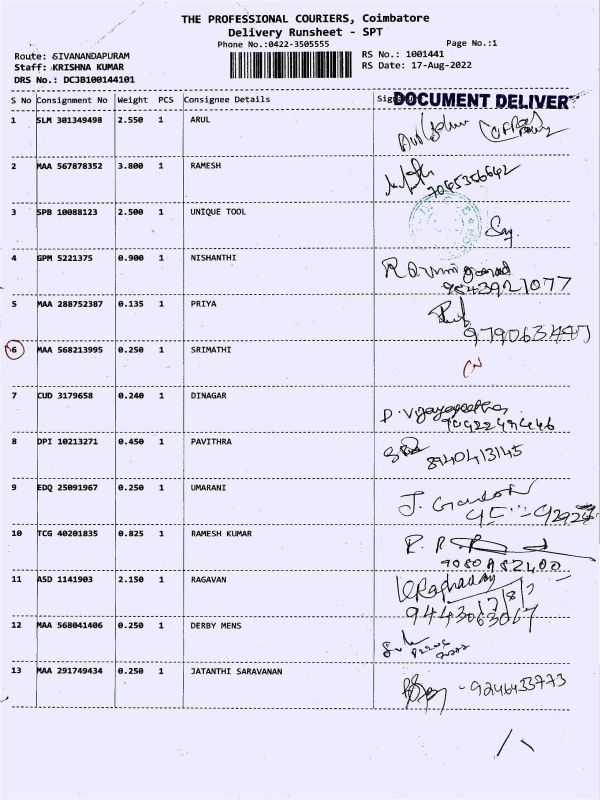 THE PROFESSIONAL COURIERS, Coimbatore
Delivery Runsheet - SPT
Phone No.:0422-3505555
Page No.:1
Route: SIVANANDAPURAM
RS No.: 1001441
Staff: KRISHNA KUMAR
RS Date: 17-Aug-2022
DRS No.: DCJB100144101
S No Consignment No Weight PCS Consignee Details
DOCUMENT DELIVER
1 SLM 301349498 2.550 1 ARUL
2 MAA 567878352 3.800 1 RAMESH
7045356642
3 SPB 10088123 2.500 1 UNIQUE TOOL
4 GPM 5221375 0.900 1 NISHANTHI
9843921077
5 MAA 288752387 0.135 1 PRIYA
6 MAA 568213995 0.250 1 SRIMATHI
7 CUD 3179658 0.240 1 DINAGAR
8 DPI 10213271 0.450 1 PAVITHRA
8940413145
9 EDQ 25091967 0.250 1 UMARANI
10 TCG 40201835 0.825 1 RAMESH KUMAR
11 ASD 1141903 2.150 1 RAGAVAN
9443063067
12 MAA 568041406 0.250 1 DERBY MENS
13 MAA 291749434 0.250 1 JATANTHI SARAVANAN